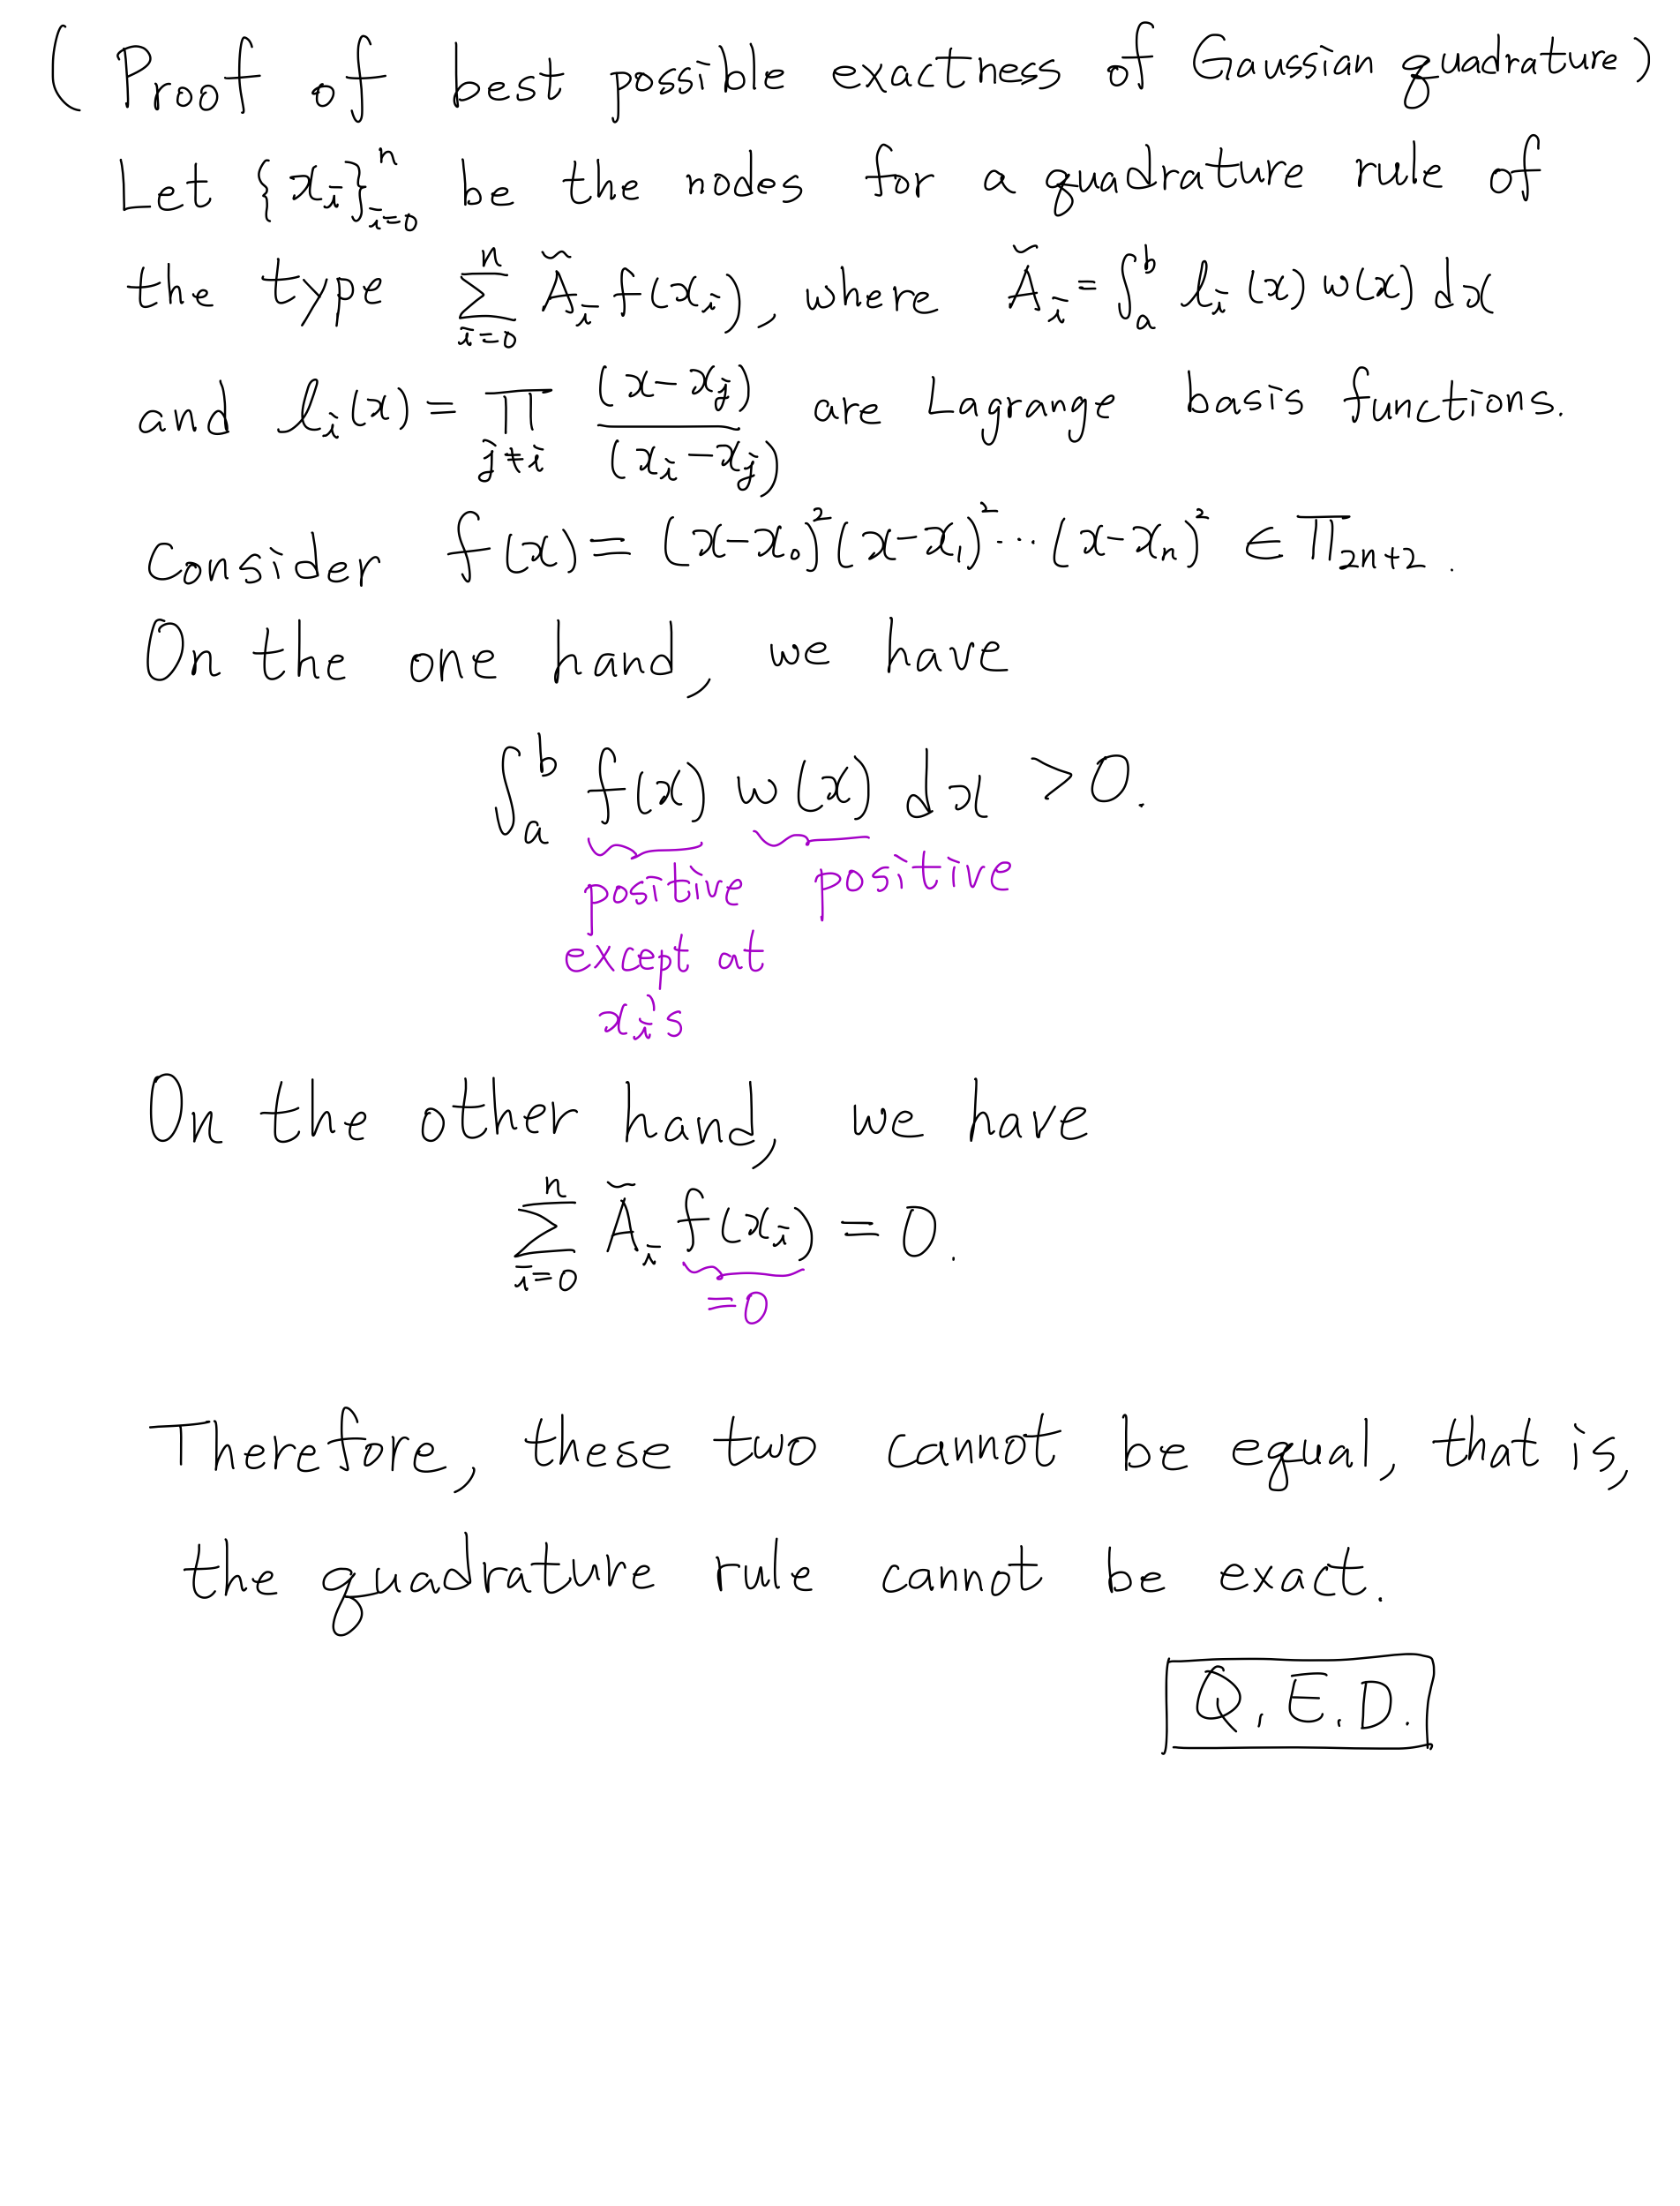 (Proof of best possible exactness of Gaussian quadrature)
Let {x_i}_{i=0}^n be the nodes for a quadrature rule of
the type \sum_{i=0}^{n} \tilde{A}_i f(x_i), where \tilde{A}_i = \int_a^b l_i(x) w(x) dx
and l_i(x) = \prod_{j≠i} \frac{(x-x_j)}{(x_i-x_j)} are Lagrange basis functions.
Consider f(x) = (x-x_0)^2 (x-x_1)^2 ··· (x-x_n)^2 ∈ Π_{2n+2}.
On the one hand, we have
\int_a^b f(x) w(x) dx > 0.
positive positive
except at
x_i's
On the other hand, we have
\sum_{i=0}^{n} \tilde{A}_i f(x_i) = 0.
=0
Therefore, these two cannot be equal, that is,
the quadrature rule cannot be exact.
Q.E.D.